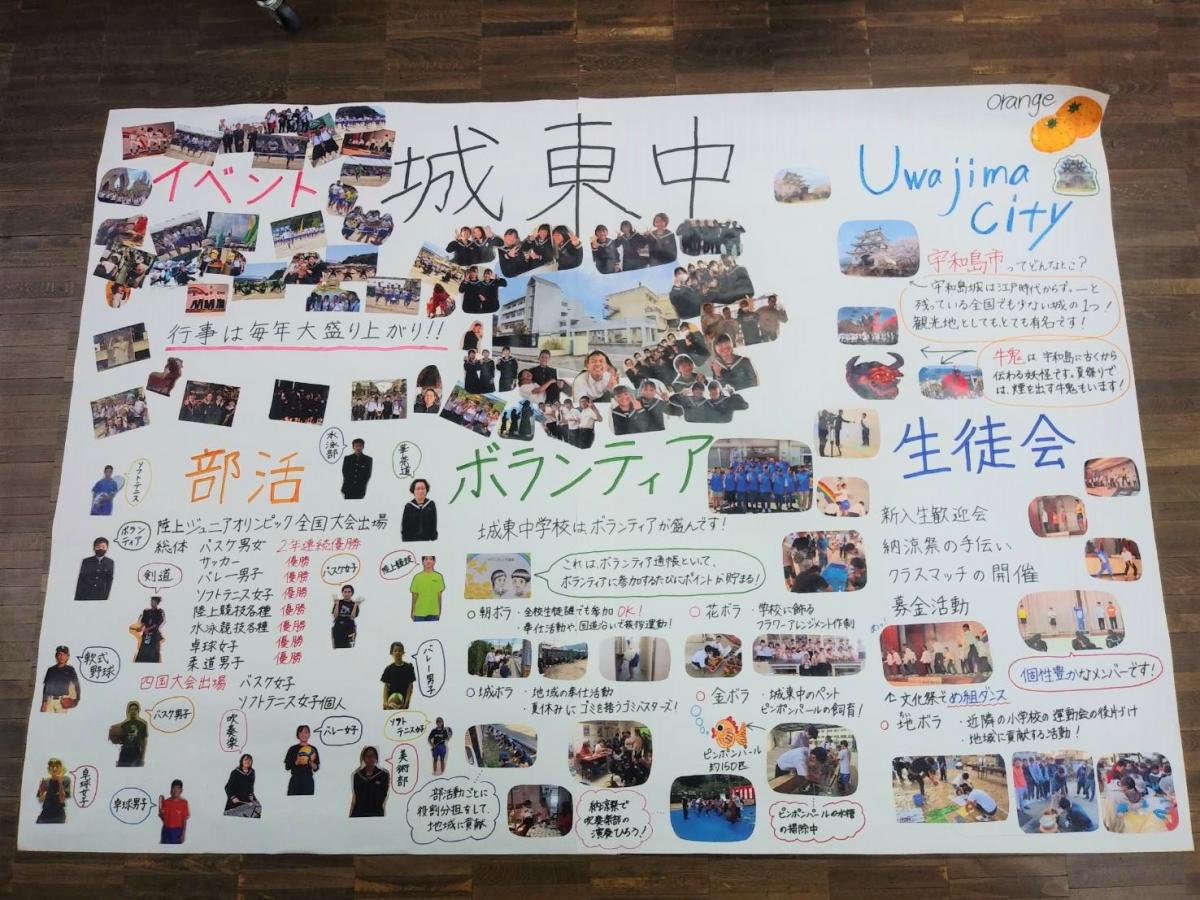 城東中
orange
Uwajima
City
イベント
行事は毎年大盛り上がり!!
宇和島市ってどんなとこ?
宇和島城は江戸時代からずーっと
残っている全国でも少ない城の1つ!
観光地としてもとても有名です!
牛鬼は宇和島に古くから
伝わる妖怪です。夏祭りで
は、煙を出す牛鬼もいます!
部活
水泳部
ソフトテニス
ボラン
ティア
陸上ジュニアオリンピック全国大会出場
総体 バスケ男女 2年連続優勝
サッカー 優勝
バレー男子 優勝
ソフトテニス女子 優勝
陸上競技各種 優勝
水泳競技各種 優勝
卓球女子 優勝
柔道男子 優勝
四国大会出場 バスケ女子
ソフトテニス女子個人
剣道
バスケ女子
陸上競技
軟式
野球
バスケ男子
吹奏楽
バレー女子
バレー男子
ソフト
テニス女子
美術部
卓球女子
卓球男子
ボランティア
城東中学校は、ボランティアが盛んです!
これは、ボランティア通帳といって、
ボランティアに参加するたびにポイントが貯まる!
○朝ボラ ・全校生徒誰でも参加OK!
・奉仕活動や、国道沿いで挨拶運動!
○花ボラ ・学校に飾る
フラワーアレンジメント作制
○城ボラ ・地域の奉仕活動
・夏休みにゴミを拾うゴミバスターズ!
○金ボラ ・城東中のペント
ピンポンパールの飼育!
ピンポンパール
約150匹
部活動ごとに
役割分担をして、
地域に貢献
納涼祭で
吹奏楽部の
演奏ひろう!
ピンポンパールの水槽
の掃除中
生徒会
新入生歓迎会
納涼祭の手伝い
クラスマッチの開催
募金活動
個性豊かなメンバーです!
↑文化祭そめ組ダンス
○地ボラ ・近隣の小学校の運動会の後片づけ
・地域に貢献する活動!